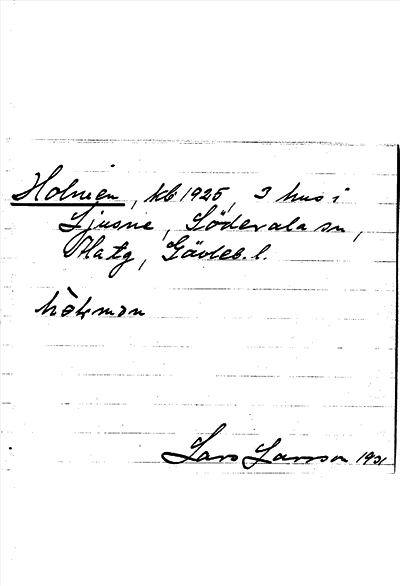 Holmen, kb 1925, 3 hus i
Ljusne, Söderala sn,
Hatg, Gävleb. l.
hòlmǝn
Lars Larsson 1931